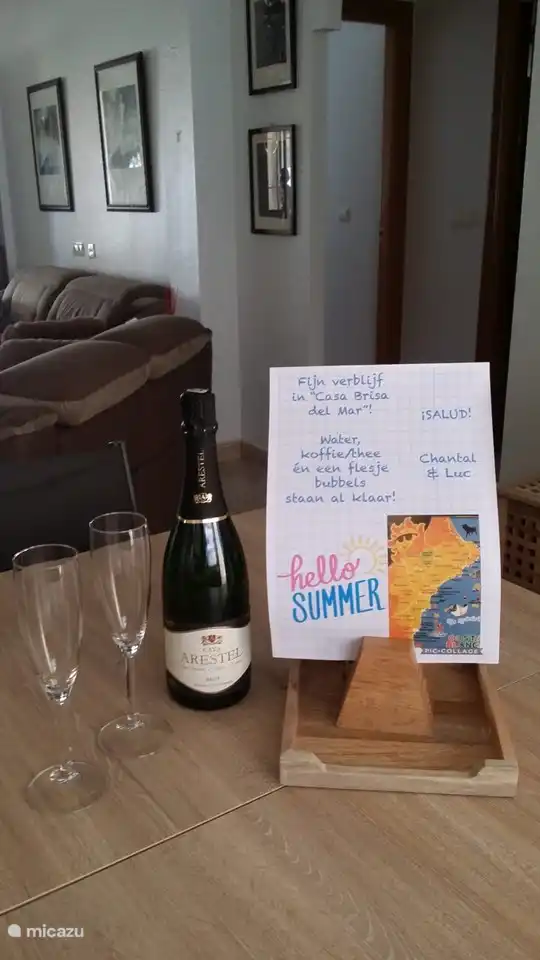 Fijn verblijf
in "Casa Brisa
del Mar"!
¡SALUD!
Water,
koffie/thee
én een flesje
bubbels
staan al klaar!
Chantal
& Luc
hello
SUMMER
PIC•COLLAGE
ARESTEL
CAVA
ARESTEL
BRUT
micazu